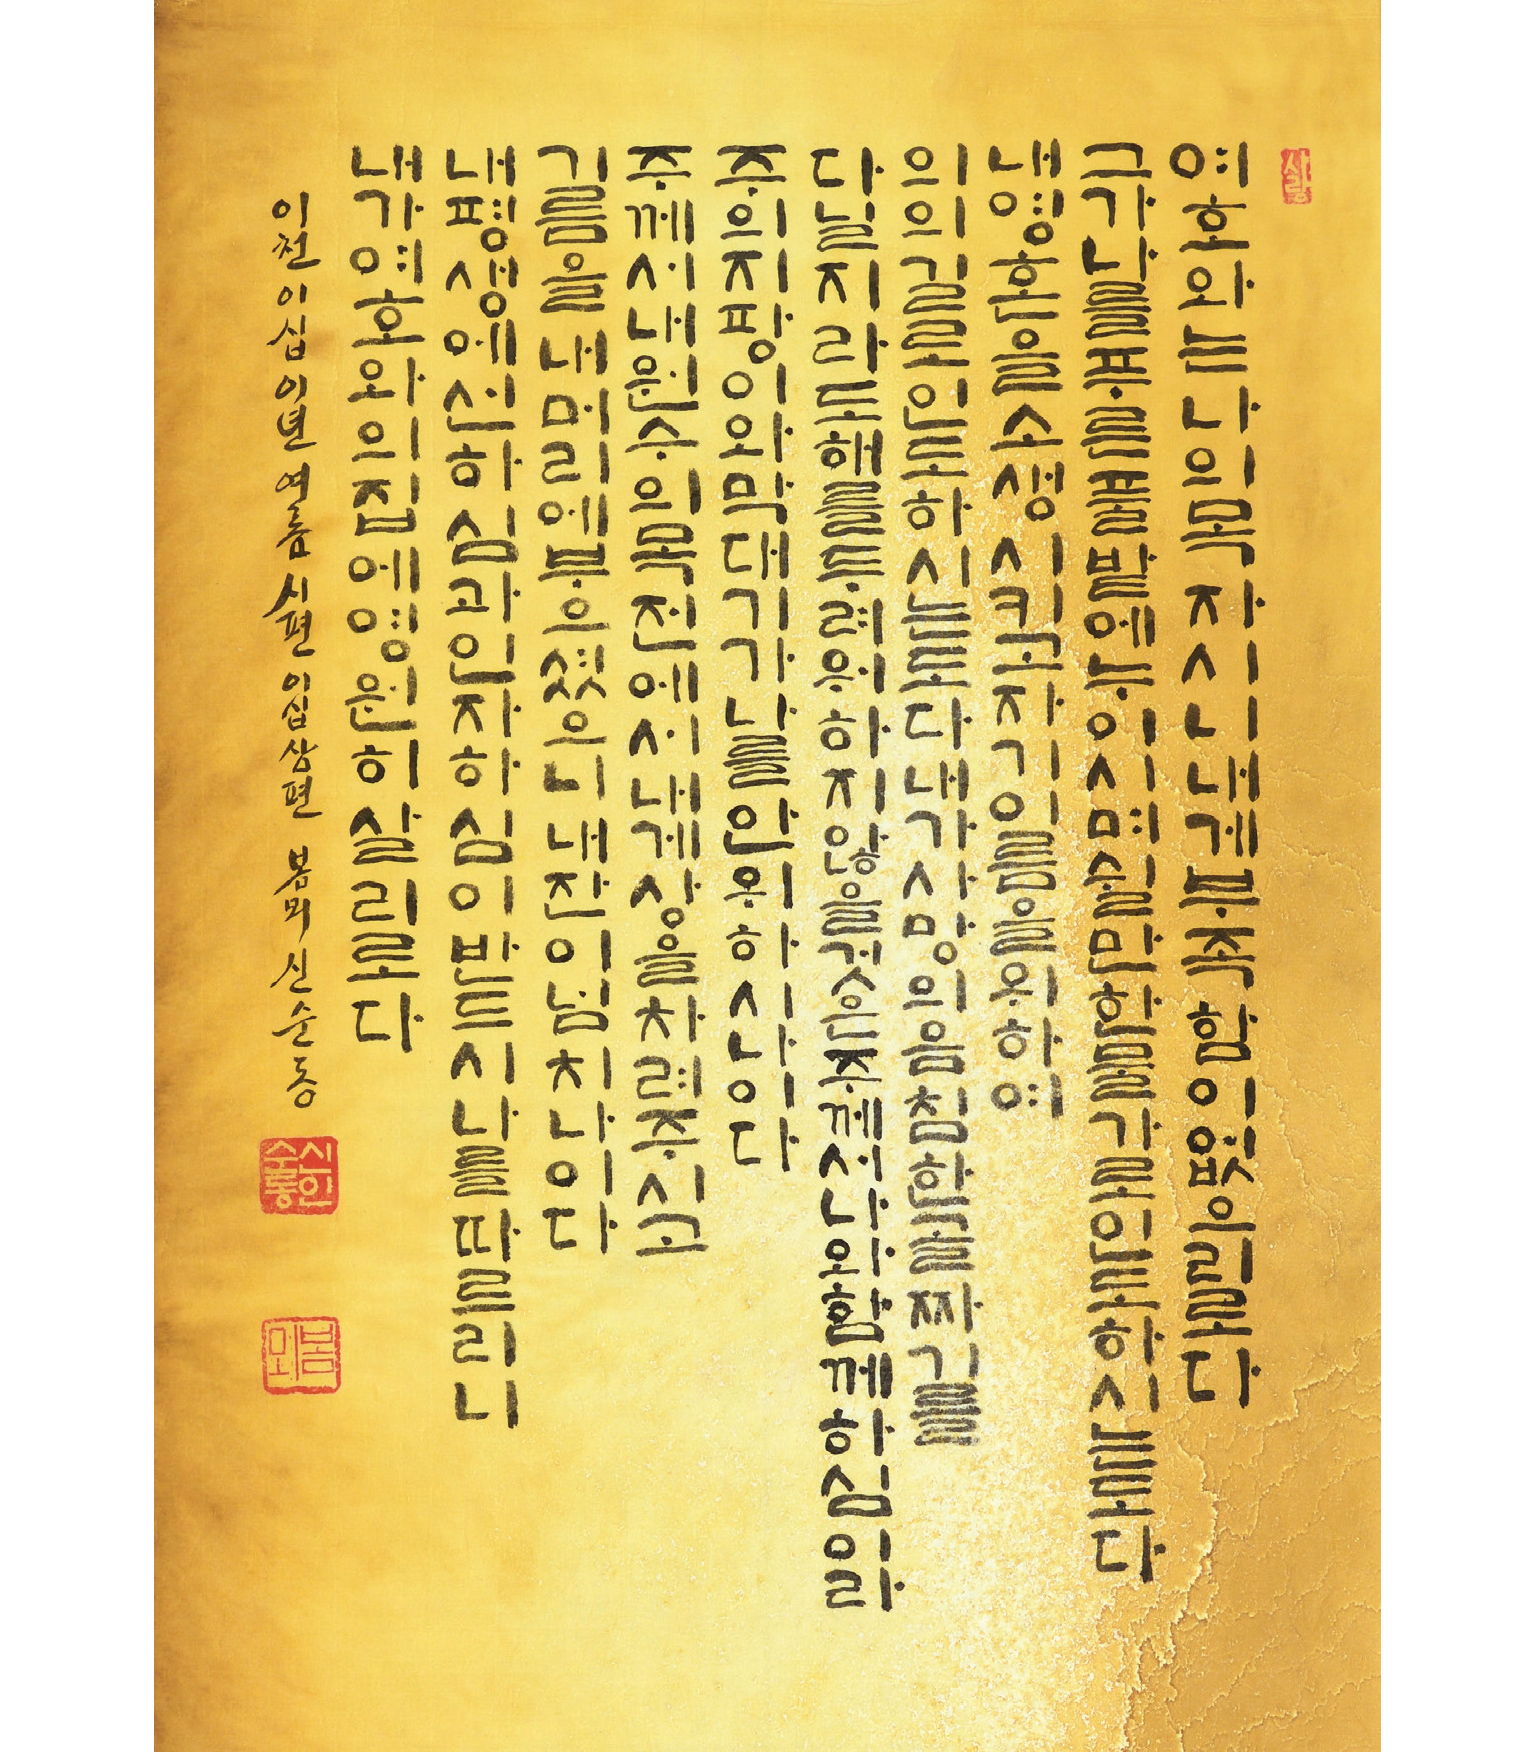 사랑
여호와는나의목자시니내게부족함이없으리로다
그가나를푸른풀밭에누이시며쉴만한물가로인도하시는도다
내영혼을소생시키고자기이름을위하여
의의길로인도하시는도다내가사망의음침한골짜기를
다닐지라도해를두려워하지않을것은주께서나와함께하심이라
주의지팡이와막대기가나를안위하시나이다
주께서내원수의목전에서내게상을차려주시고
기름을내머리에부으셨으니내잔이넘치나이다
내평생에선하심과인자하심이반드시나를따르리니
내가여호와의집에영원히살리로다
이천이십이년여름 시편이십삼편 봄뫼신순동
시인순동
봄뫼